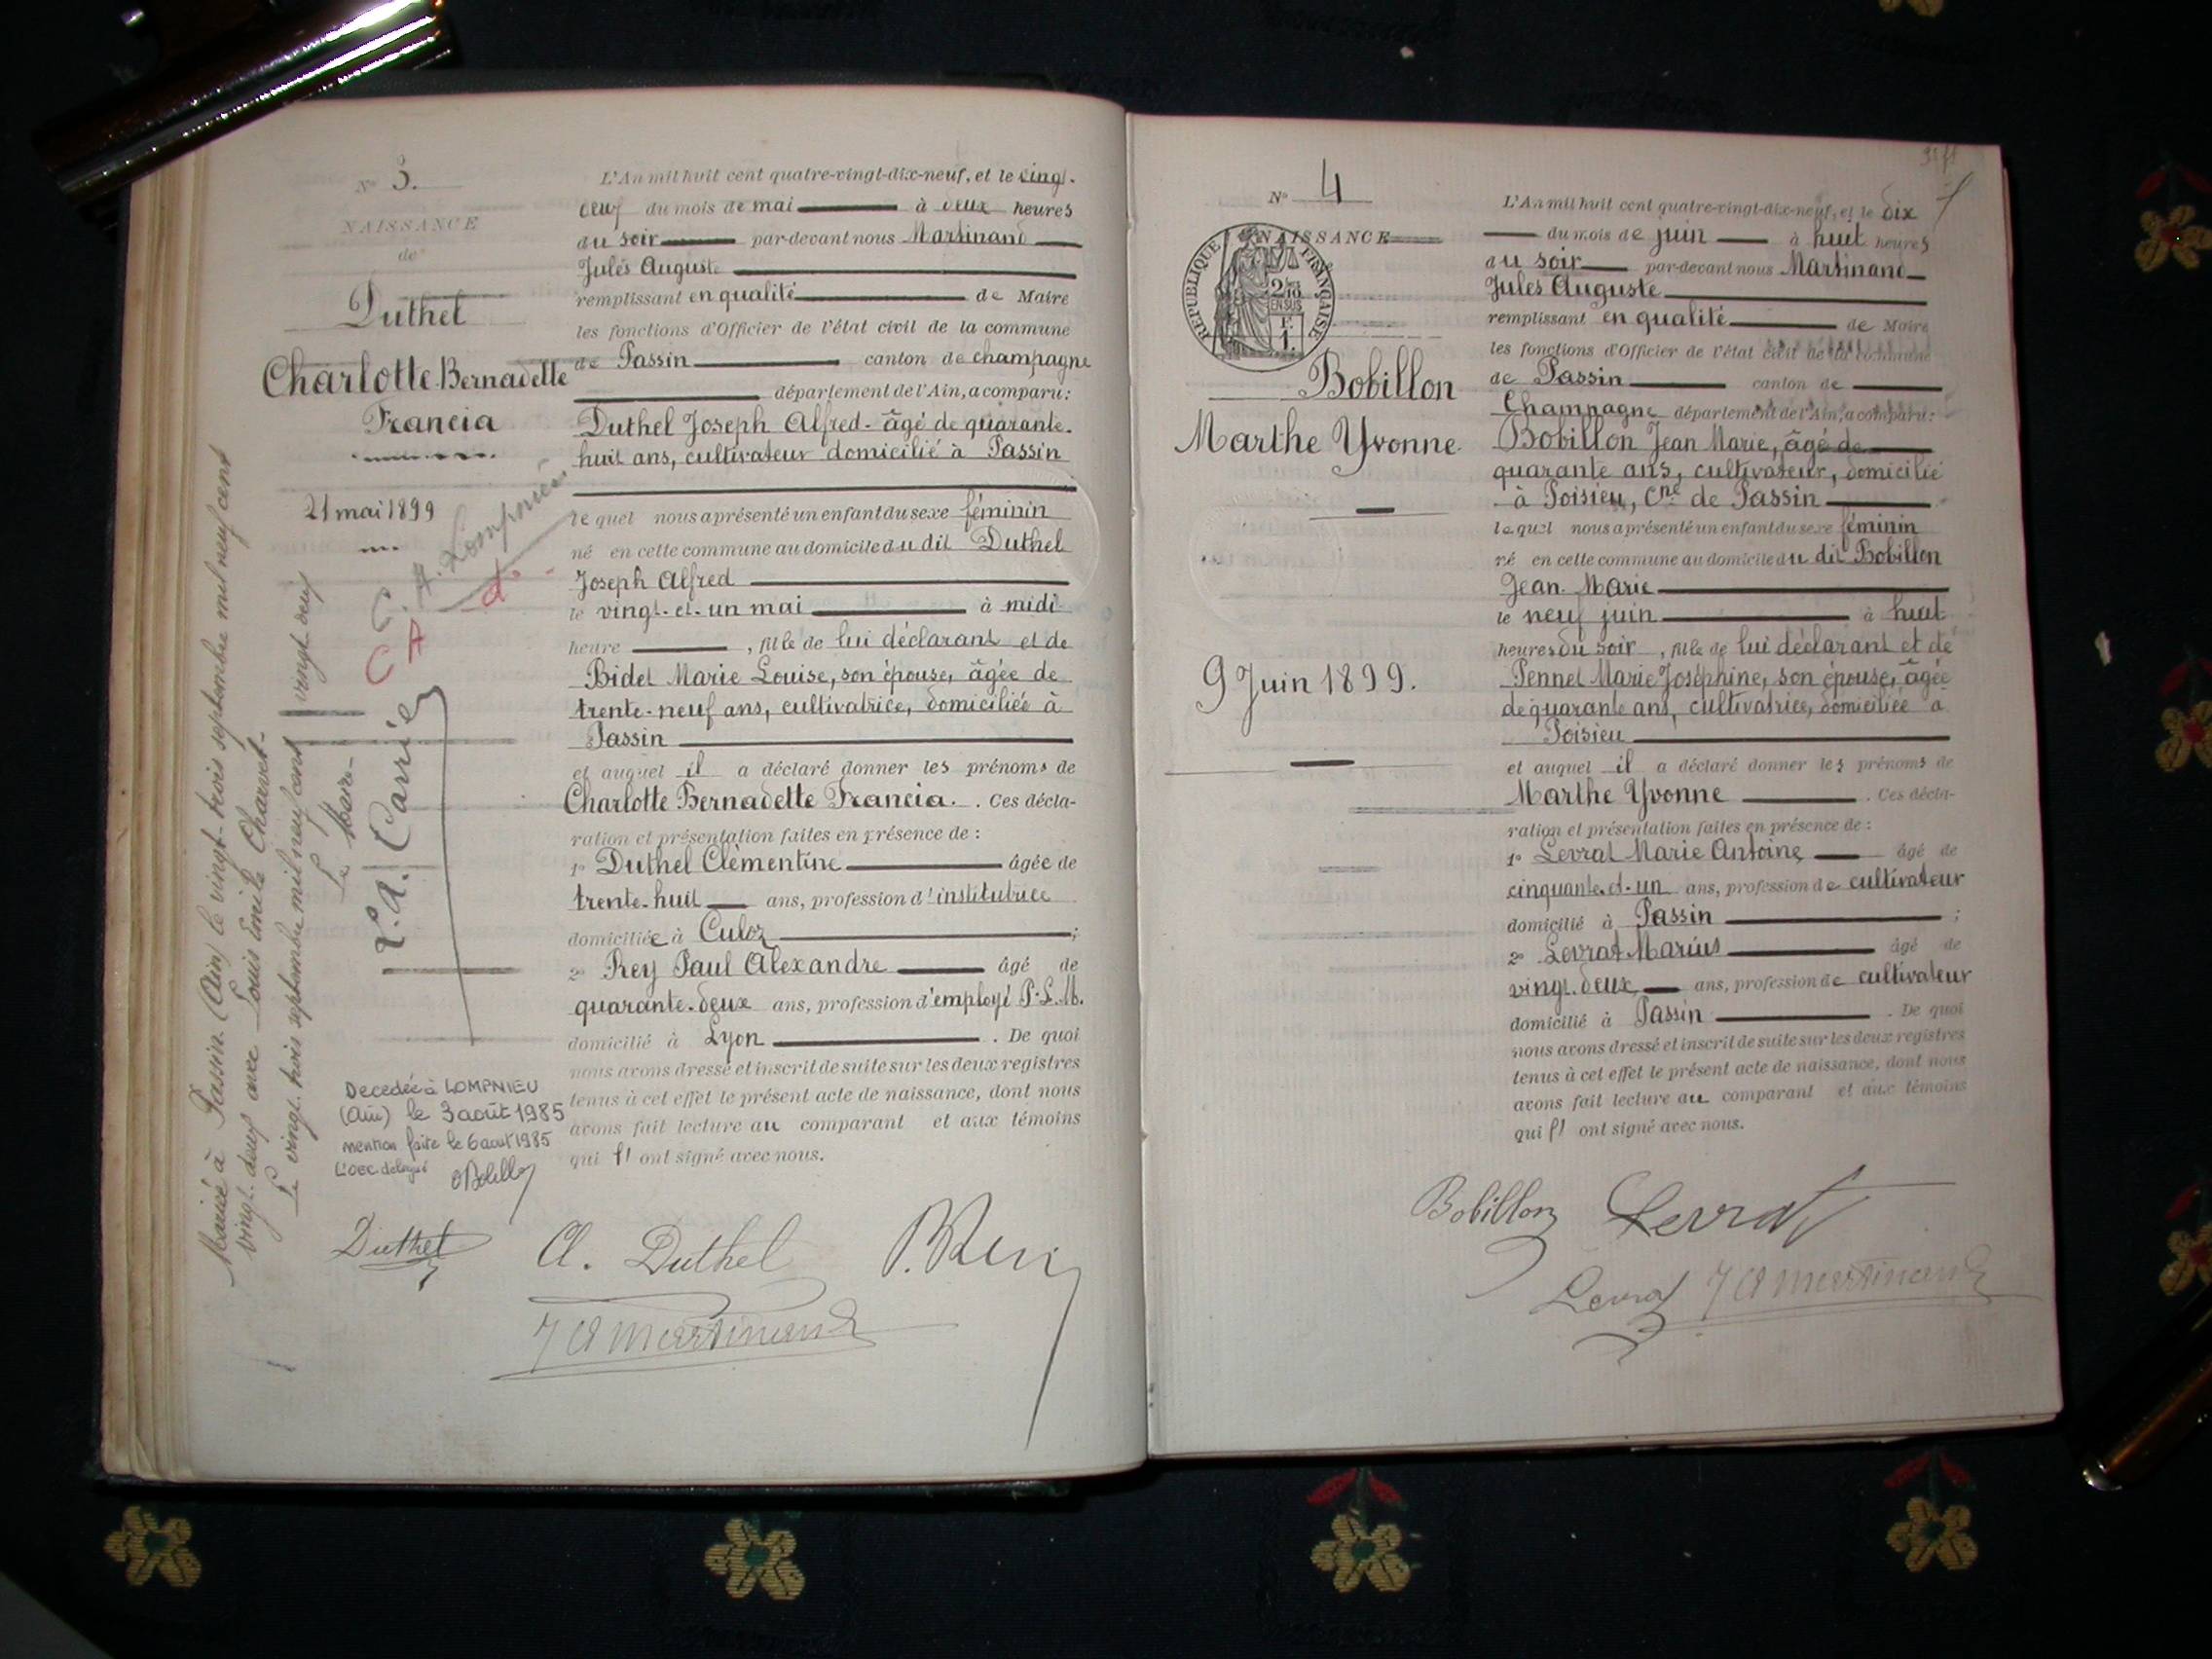 N° 3.
NAISSANCE
de
Duthel
Charlotte Bernadette
Francia
21 mai 1899
L'An mil huit cent quatre-vingt-dix-neuf, et le vingt-
deux du mois de mai à deux heures
du soir par-devant nous Martinand
Jules Auguste
remplissant en qualité de Maire
les fonctions d'Officier de l'état civil de la commune
de Passin canton de champagne
département de l'Ain, a comparu:
Duthel Joseph Alfred - âgé de quarante-
huit ans, cultivateur domicilié à Passin
lequel nous a présenté un enfant du sexe féminin
né en cette commune au domicile du dit Duthel
Joseph Alfred
le vingt-et-un mai à midi
heure , fille de lui déclarant et de
Bidet Marie Louise, son épouse, âgée de
trente-neuf ans, cultivatrice, domiciliée à
Passin
et auquel il a déclaré donner les prénoms de
Charlotte Bernadette Francia. . Ces décla-
ration et présentation faites en présence de :
1° Duthel Clémentine âgée de
trente-huit ans, profession d'institutrice
domiciliée à Culoz ;
2° Rey Paul Alexandre âgé de
quarante-deux ans, profession d'employé P.L.M.
domicilié à Lyon . De quoi
nous avons dressé et inscrit de suite sur les deux registres
tenus à cet effet le présent acte de naissance, dont nous
avons fait lecture au comparant et aux témoins
qui ont signé avec nous.
Mariée à Passin (Ain) le vingt-trois septembre mil neuf cent
vingt-deux avec Louis Emile Charvet-
Le vingt-trois septembre mil neuf cent vingt-deux
Le Maire-
L.A. Carrie
C A d°
Decedée à LOMPNIEU
(Ain) le 3 août 1985
mention faite le 6 aout 1985
L'OEC délégué
Duthel Cl. Duthel P. Rey
J A Martinand
N° 4
NAISSANCE
REPUBLIQUE FRANÇAISE
2/10 EN SUS
F. 1.
Bobillon
Marthe Yvonne
9 Juin 1899.
L'An mil huit cent quatre-vingt-dix-neuf, et le dix
du mois de juin à huit heures
du soir par-devant nous Martinand
Jules Auguste
remplissant en qualité de Maire
les fonctions d'Officier de l'état civil de la commune
de Passin canton de
Champagne département de l'Ain, a comparu:
Bobillon Jean Marie, âgé de
quarante ans, cultivateur, domicilié
à Poisieu, Cne de Passin
lequel nous a présenté un enfant du sexe féminin
né en cette commune au domicile du dit Bobillon
Jean Marie
le neuf juin à huit
heures du soir , fille de lui déclarant et de
Pennet Marie Joséphine, son épouse, âgée
de quarante ans, cultivatrice, domiciliée à
Poisieu
et auquel il a déclaré donner les prénoms de
Marthe Yvonne . Ces décla-
ration et présentation faites en présence de :
1° Levrat Marie Antoine âgé de
cinquante-et-un ans, profession de cultivateur
domicilié à Passin ;
2° Levrat Marius âgé de
vingt-deux ans, profession de cultivateur
domicilié à Passin . De quoi
nous avons dressé et inscrit de suite sur les deux registres
tenus à cet effet le présent acte de naissance, dont nous
avons fait lecture au comparant et aux témoins
qui ont signé avec nous.
Bobillon Levrat
Levrat J A Martinand